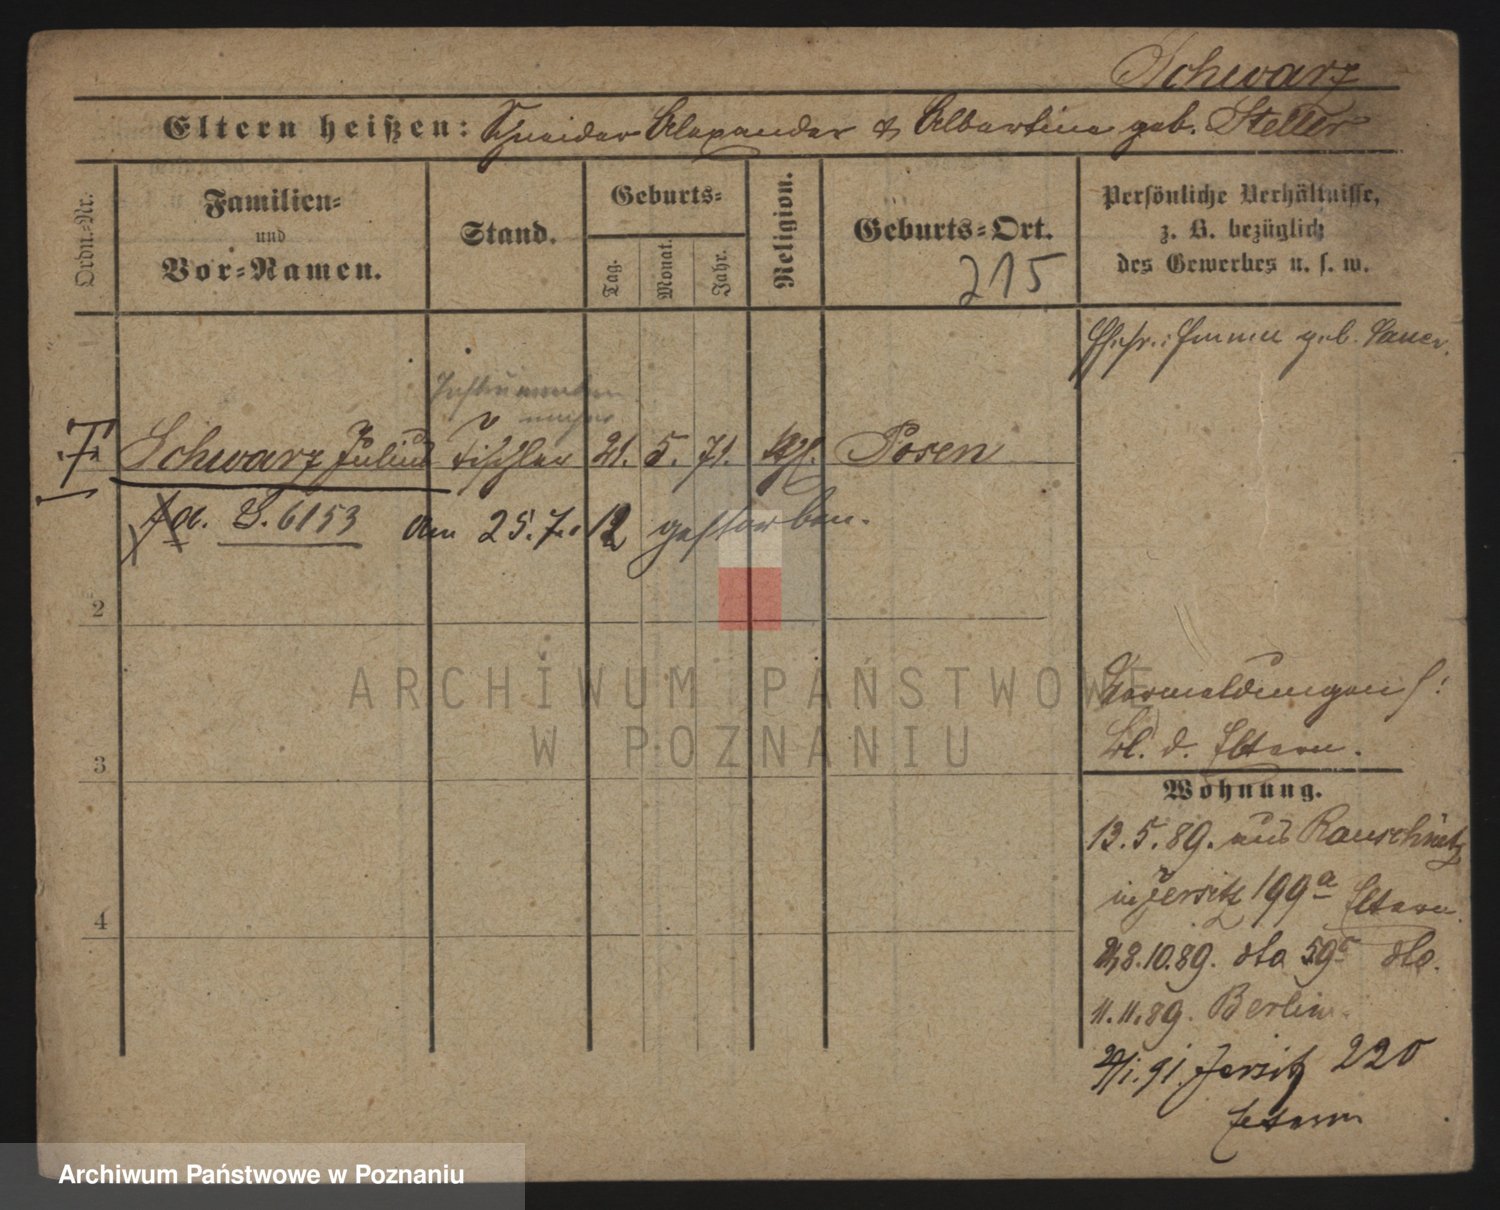 Schwarz
Eltern heißen: Schneider Alexander & Albertine geb. Steller
Ordn.-Nr.
Familien-
und
Vor-Namen.
Stand.
Geburts-
Tag.
Monat.
Jahr.
Religion.
Geburts-Ort.
215
Persönliche Verhältnisse,
z. B. bezüglich
des Gewerbes u. s. w.
Ehefr.: Emma geb. Sauer.
Instrumenten
macher
Schwarz Julius Tischler 21. 5. 71. Posen
S. 6153 am 25. 7. 12 gestorben.
2
3
4
Vermeldungen s!
bl. d. Eltern.
Wohnung.
13. 5. 89. aus Rauschwitz
in Jersitz 199a Eltern.
8. 10. 89. dto 59c dto.
11. 11. 89. Berlin.
1. 91. Jersitz 220
Eltern
ARCHIWUM PAŃSTWOWE
W POZNANIU
Archiwum Państwowe w Poznaniu